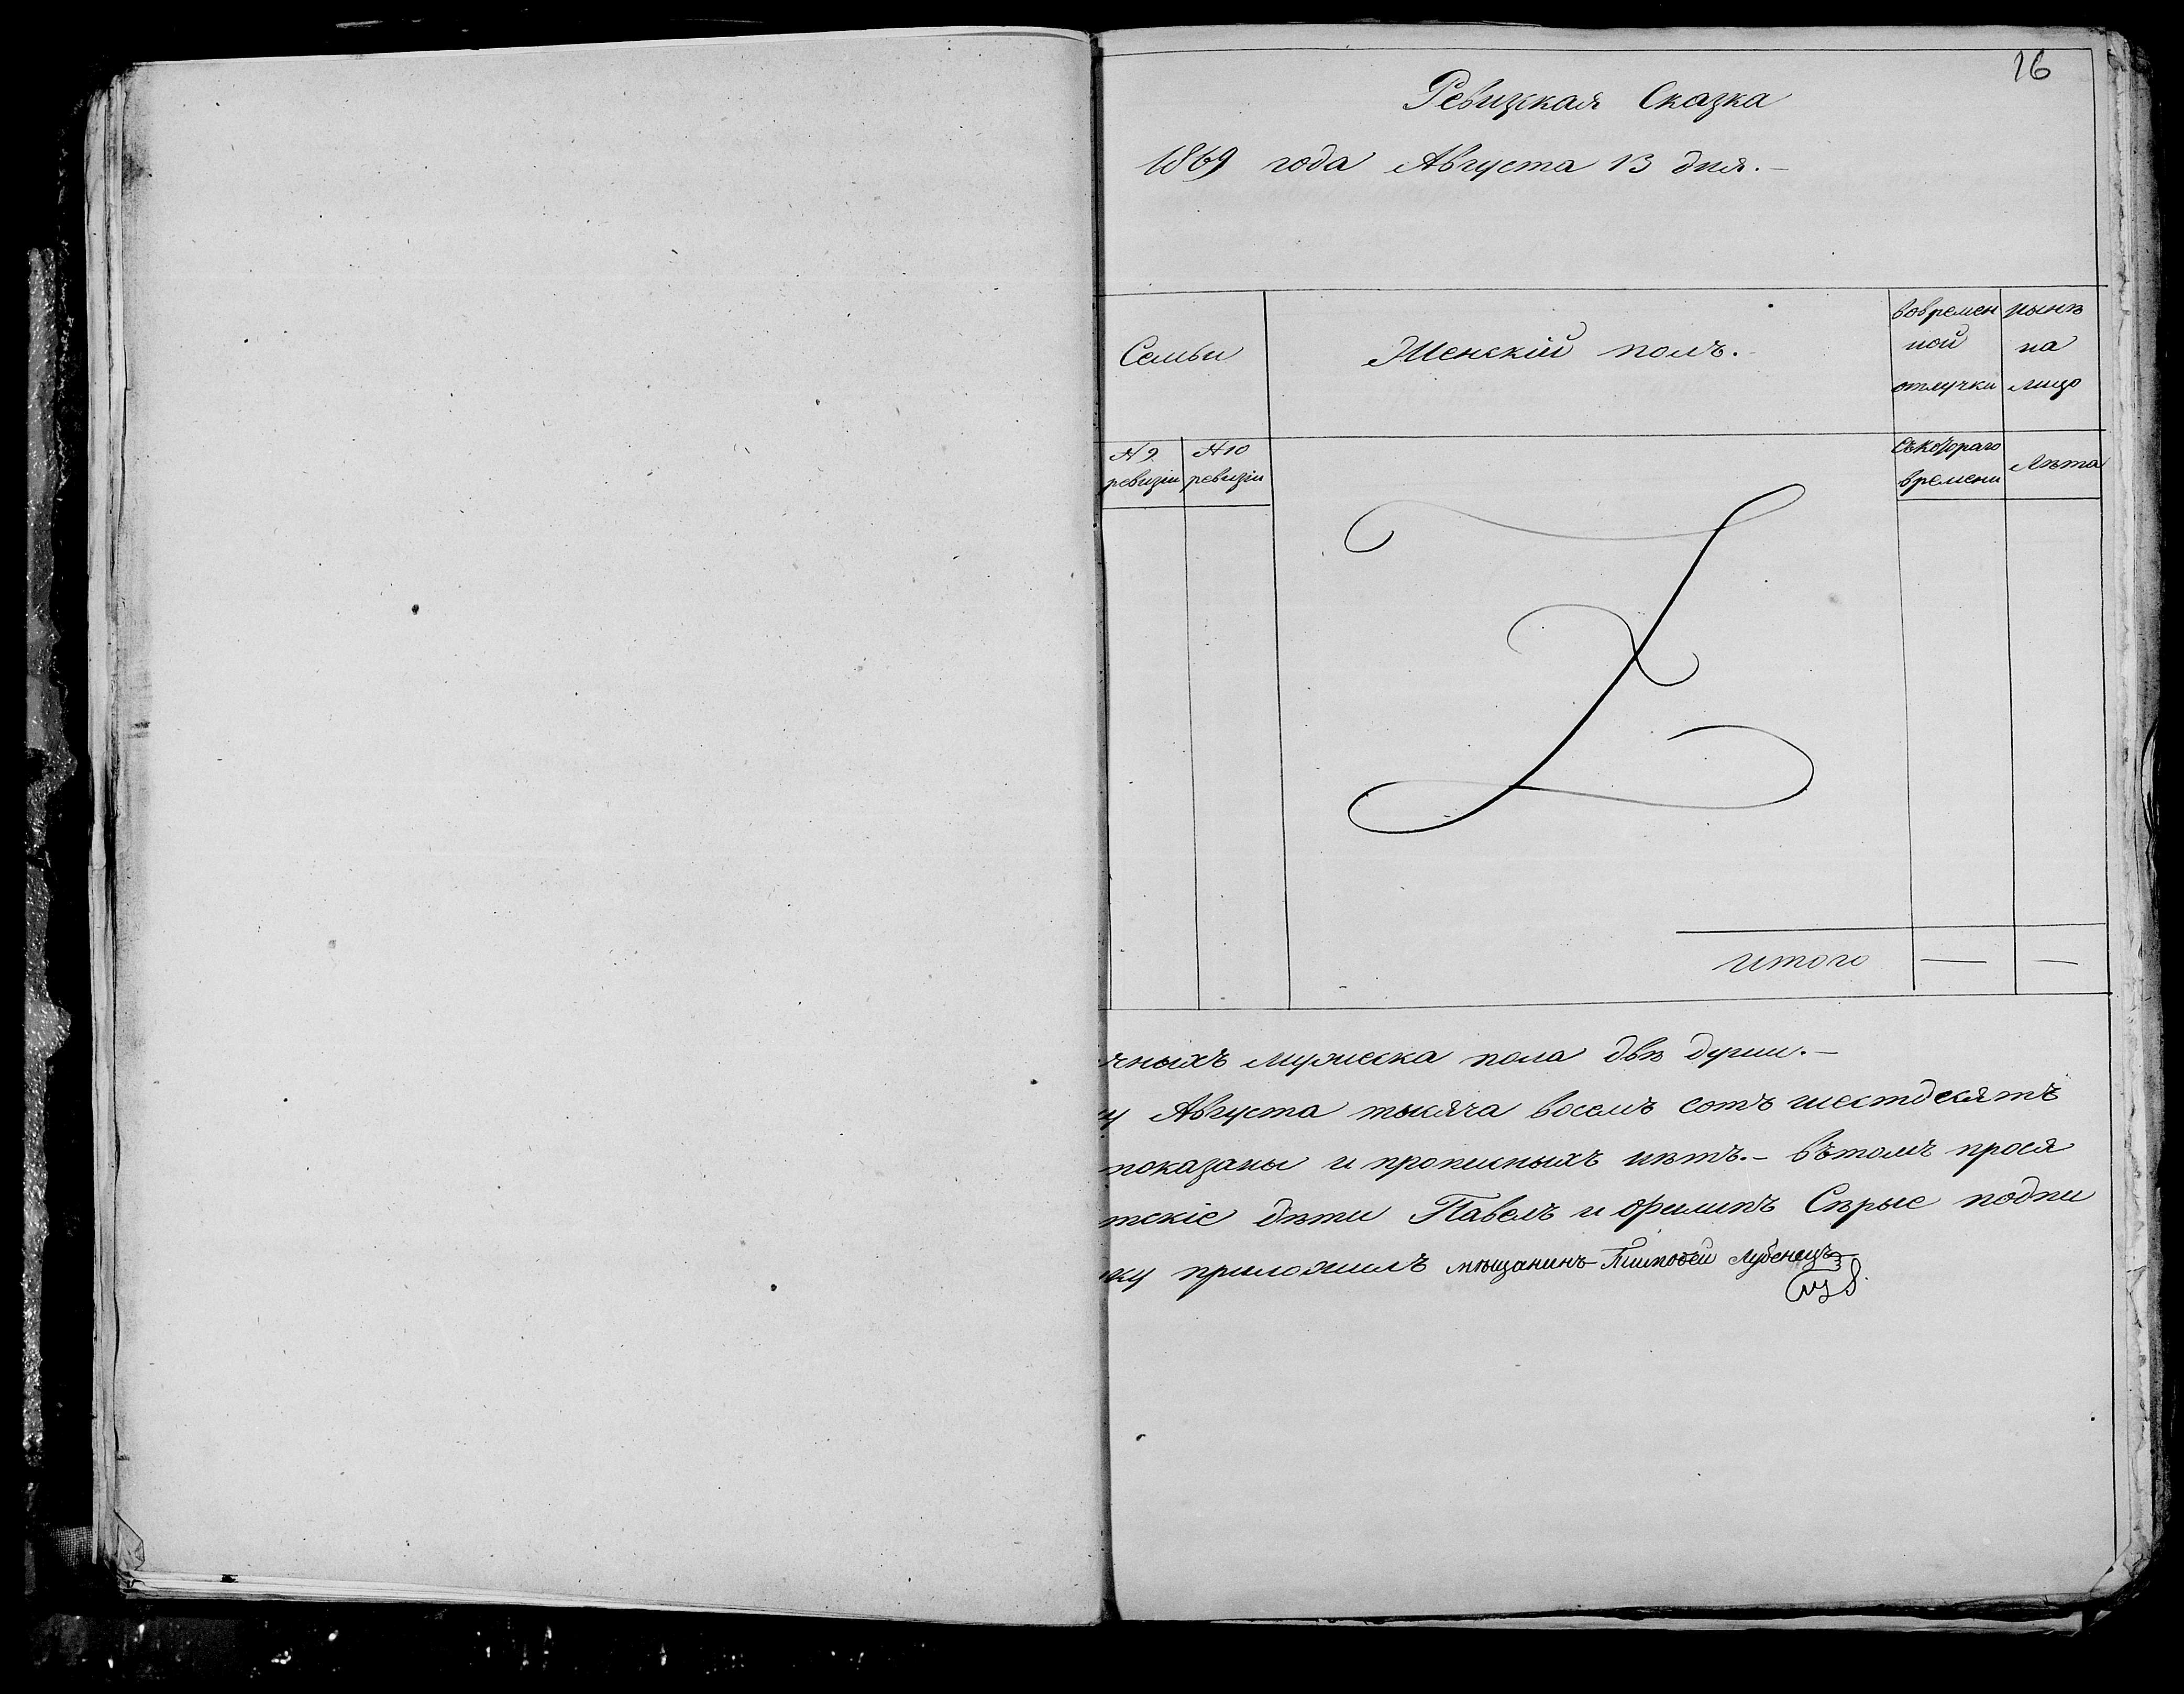 16
Ревизкая Сказка
1869 года Августа 13 дня.—
Семьи
Женскій полъ.
вовремен
ной
отлучки
нынѣ
на
лицо
№ 9
ревизіи
№ 10
ревизіи
Съкотораго
времени
Лѣта
итого — —
чныхъ мужеска пола двѣ души.—
у Августа тысяча восемъ сотъ шестдесятъ
показаны и прописныхъ нѣтъ.— вътомъ прося
тскіе дѣти Павелъ и Филипъ Сѣрые подпи
ку приложилъ мѣщанинъ Тимофей Лубенецъ